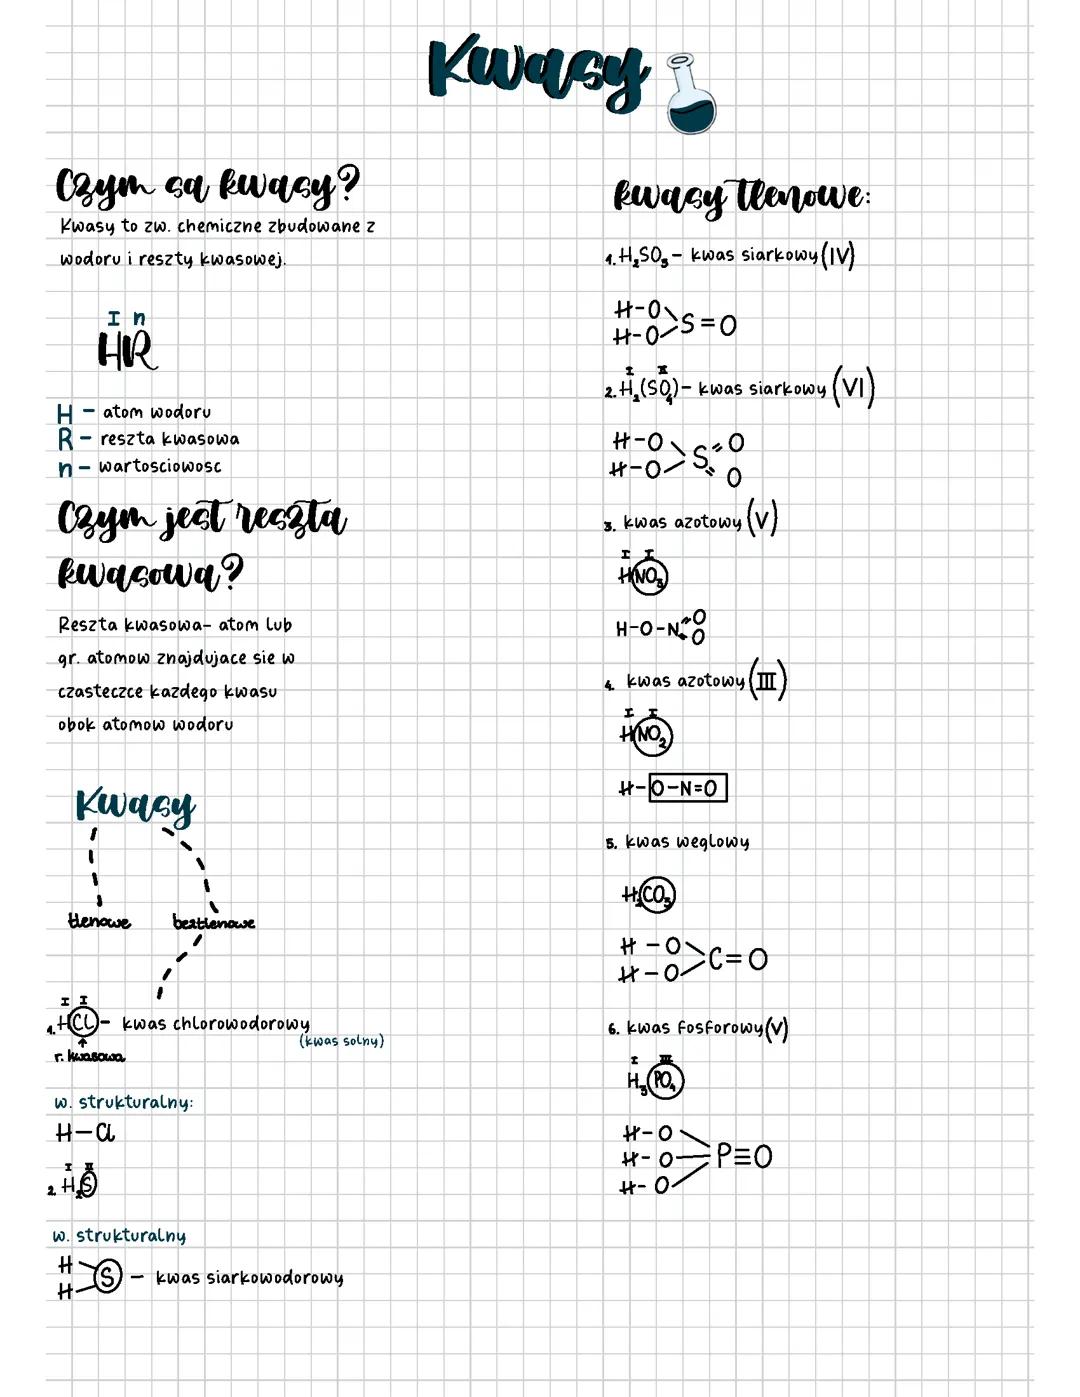 Kwasy
Czym są kwasy?
Kwasy to zw. chemiczne zbudowane z
wodoru i reszty kwasowej.
I n
HR
H - atom wodoru
R - reszta kwasowa
n - wartosciowosc
Czym jest reszta
kwasowa?
Reszta kwasowa- atom lub
gr. atomow znajdujace sie w
czasteczce kazdego kwasu
obok atomow wodoru
Kwasy
tlenowe beztlenowe
I I
1. HCl - kwas chlorowodorowy
(kwas solny)
r. kwasowa
w. strukturalny:
H-Cl
I II
2. H₂S
w. strukturalny
H
S - kwas siarkowodorowy
H
kwasy tlenowe:
1. H₂SO₃ - kwas siarkowy (IV)
H-O
S=O
H-O
I II
2. H₂(SO₄) - kwas siarkowy (VI)
H-O S=O
H-O =O
3. kwas azotowy (V)
I I
HNO₃
H-O-N=O
=O
4. kwas azotowy (III)
I I
HNO₂
H-O-N=O
5. kwas weglowy
H₂CO₃
H-O
C=O
H-O
6. kwas fosforowy (V)
I III
H₃PO₄
H-O
H-O-P≡O
H-O